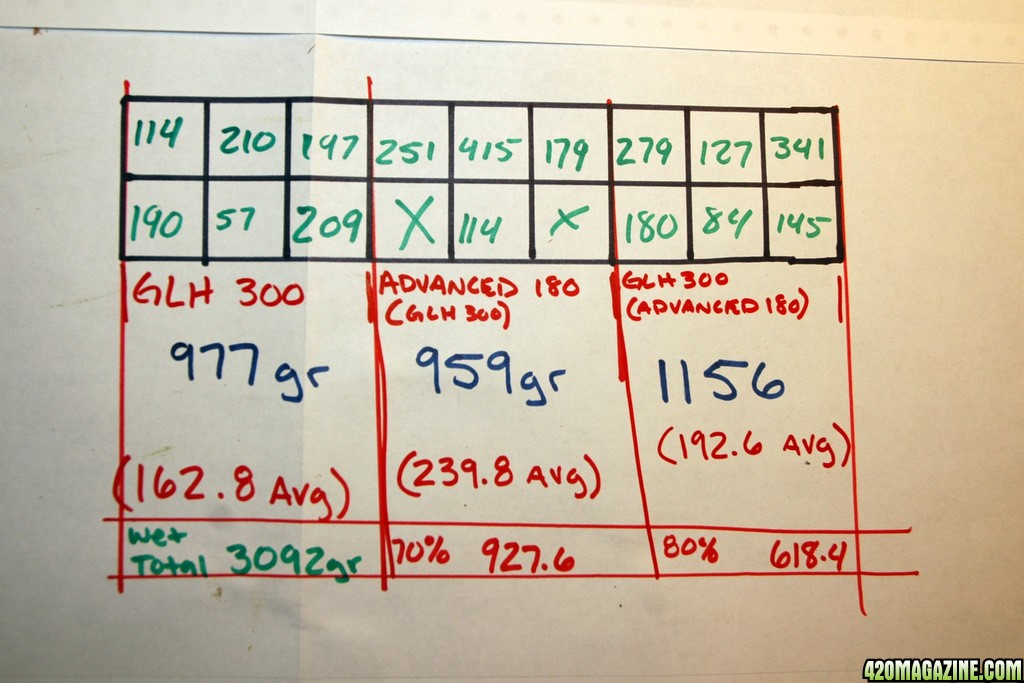 114 210 197 251 415 179 279 127 341
190 57 209 X 114 X 180 84 145
GLH 300
ADVANCED 180
(GLH 300)
GLH 300
(ADVANCED 180)
977gr
959gr
1156
(162.8 Avg)
(239.8 Avg)
(192.6 Avg)
Wet
Total 3092gr
70% 927.6
80% 618.4
420MAGAZINE.COM